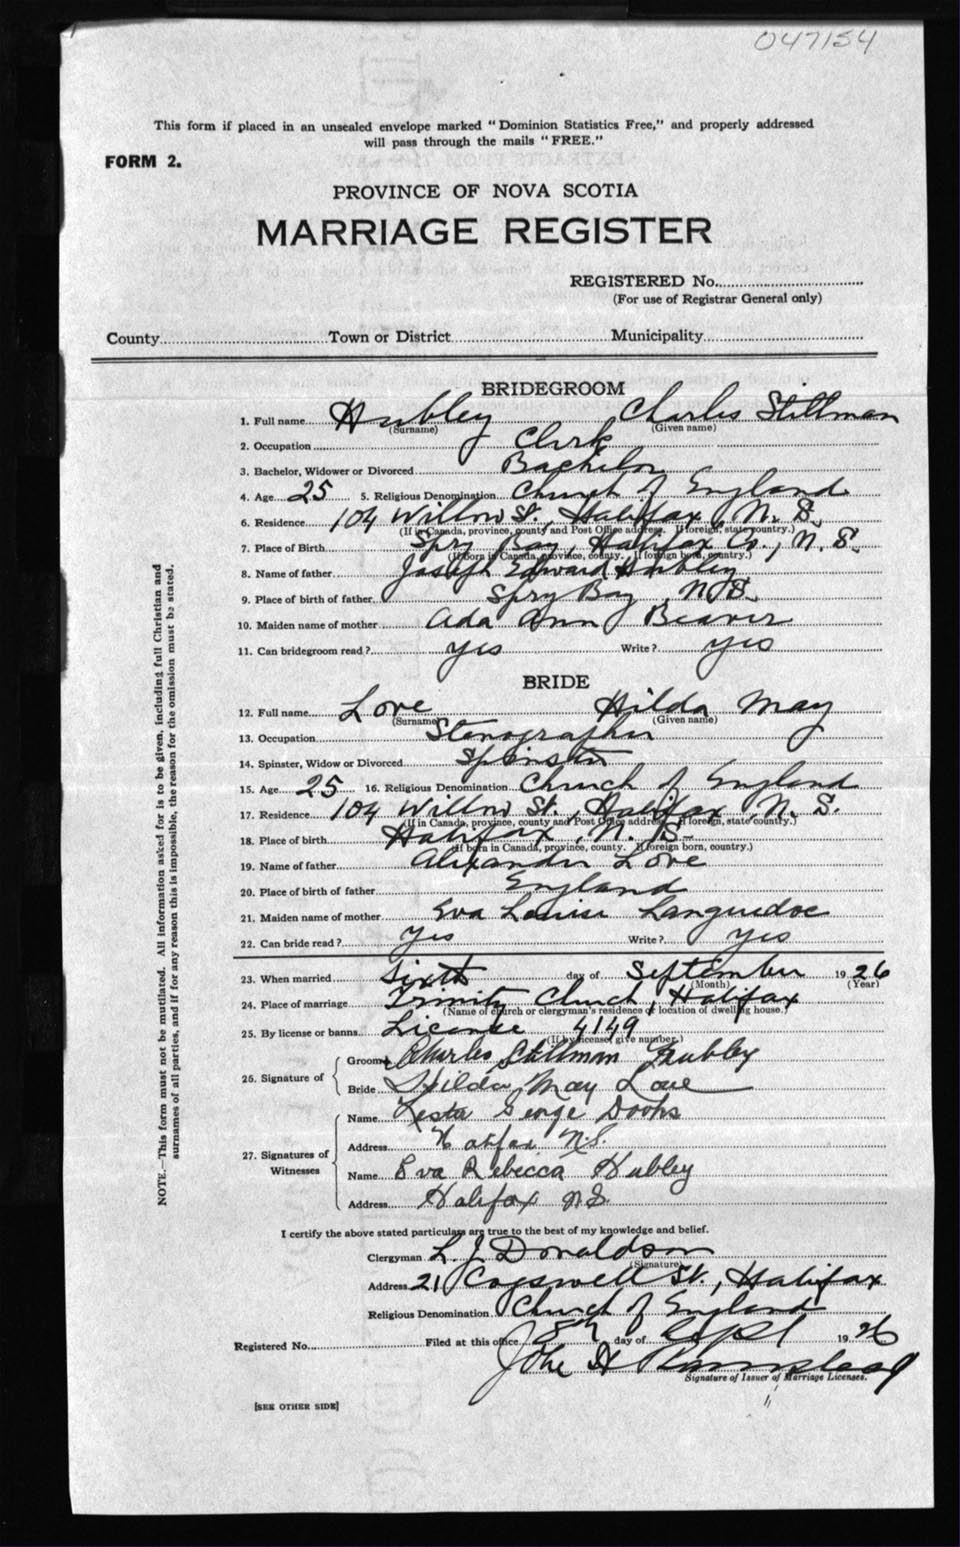 047154
This form if placed in an unsealed envelope marked "Dominion Statistics Free," and properly addressed
will pass through the mails "FREE."
FORM 2.
PROVINCE OF NOVA SCOTIA
MARRIAGE REGISTER
REGISTERED No.
(For use of Registrar General only)
County Town or District Municipality
BRIDEGROOM
1. Full name Hubley Charles Stillman
(Surname) (Given name)
2. Occupation Clerk
3. Bachelor, Widower or Divorced Bachelor
4. Age 25 5. Religious Denomination Church of England
6. Residence 104 Willow St., Halifax, N. S.
(If in Canada, province, county and Post Office address. If foreign, state country.)
7. Place of Birth Spry Bay, Halifax Co., N. S.
(If born in Canada, province, county. If foreign born, country.)
8. Name of father Joseph Edward Hubley
9. Place of birth of father Spry Bay, N. S.
10. Maiden name of mother Ada Ann Beaver
11. Can bridegroom read? yes Write? yes
BRIDE
12. Full name Love Hilda May
(Surname) (Given name)
13. Occupation Stenographer
14. Spinster, Widow or Divorced Spinster
15. Age 25 16. Religious Denomination Church of England
17. Residence 104 Willow St., Halifax, N. S.
(If in Canada, province, county and Post Office address. If foreign, state country.)
18. Place of birth Halifax, N. S.
(If born in Canada, province, county. If foreign born, country.)
19. Name of father Alexander Love
20. Place of birth of father England
21. Maiden name of mother Eva Louise Languedoc
22. Can bride read? yes Write? yes
23. When married Sixth day of September 1926
(Month) (Year)
24. Place of marriage Trinity Church, Halifax
(Name of church or clergyman's residence or location of dwelling house.)
25. By license or banns License 4149
(If by license, give number.)
26. Signature of
Groom Charles Stillman Hubley
Bride Hilda May Love
27. Signatures of Witnesses
Name George
Address Halifax N.S.
Name Eva Rebecca Hubley
Address Halifax N.S.
I certify the above stated particulars are true to the best of my knowledge and belief.
Clergyman L. J. Donaldson
(Signature)
Address 21 Cogswell St., Halifax
Religious Denomination Church of England
Registered No. Filed at this office 8th day of Sept 1926
John H
Signature of Issuer of Marriage Licenses.
[SEE OTHER SIDE]
NOTE.—This form must not be mutilated. All information asked for is to be given, including full Christian and
surnames of all parties, and if for any reason this is impossible, the reason for the omission must be stated.